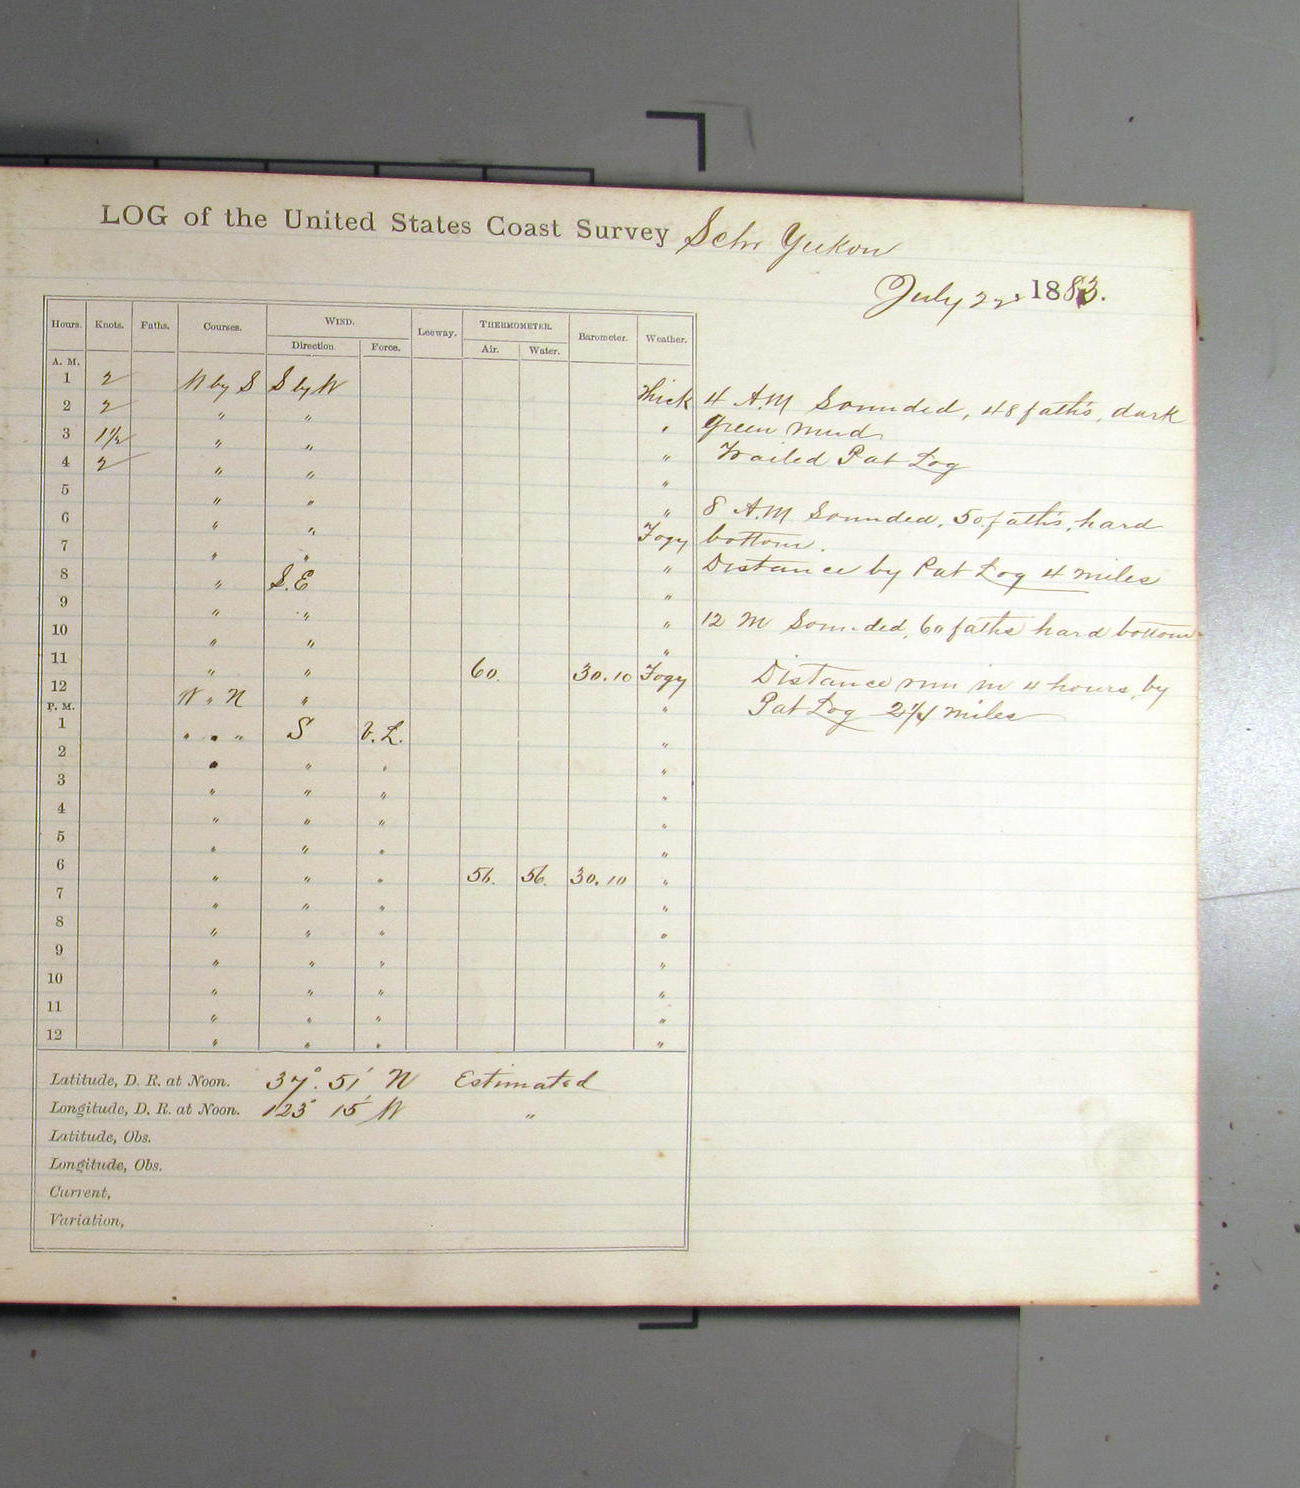 LOG of the United States Coast Survey Schr Yukon
July 22d 1883.
Hours. Knots. Faths. Courses. WIND. Leeway. THERMOMETER. Barometer. Weather.
Direction. Force. Air. Water.
A. M.
1 2 W by S S by W Thick
2 2 " " "
3 1½ " " "
4 2 " " "
5 " " "
6 " " Fogy
7 " " "
8 " S.E "
9 " " "
10 " " "
11 " " 60. 30.10 Fogy
12 W " N " "
P. M.
1 " " " S V.L. "
2 " " " "
3 " " " "
4 " " " "
5 " " " "
6 " " " 56. 56. 30.10 "
7 " " " "
8 " " " "
9 " " " "
10 " " " "
11 " " " "
12 " " " "
4 A.M Sounded, 48 faths, dark
green mud
Trailed Pat Log
8 A.M Sounded, 50 faths, hard
bottom.
Distance by Pat Log 4 miles
12 M Sounded, 60 faths hard bottom
Distance run in 4 hours, by
Pat Log 2¼ miles
Latitude, D. R. at Noon. 37°. 51' N Estimated
Longitude, D. R. at Noon. 123° 15' W "
Latitude, Obs.
Longitude, Obs.
Current,
Variation,